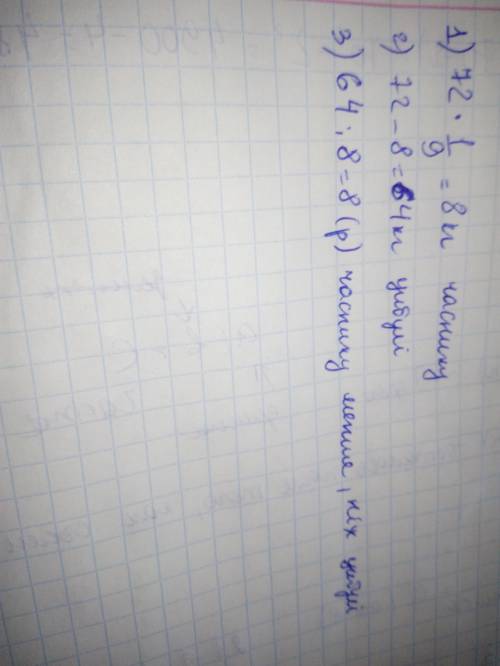 1) 72 · 1/9 = 8 кг часнику
2) 72 - 8 = 64 кг цибулі
3) 64 : 8 = 8 (р) часнику менше, ніж цибулі